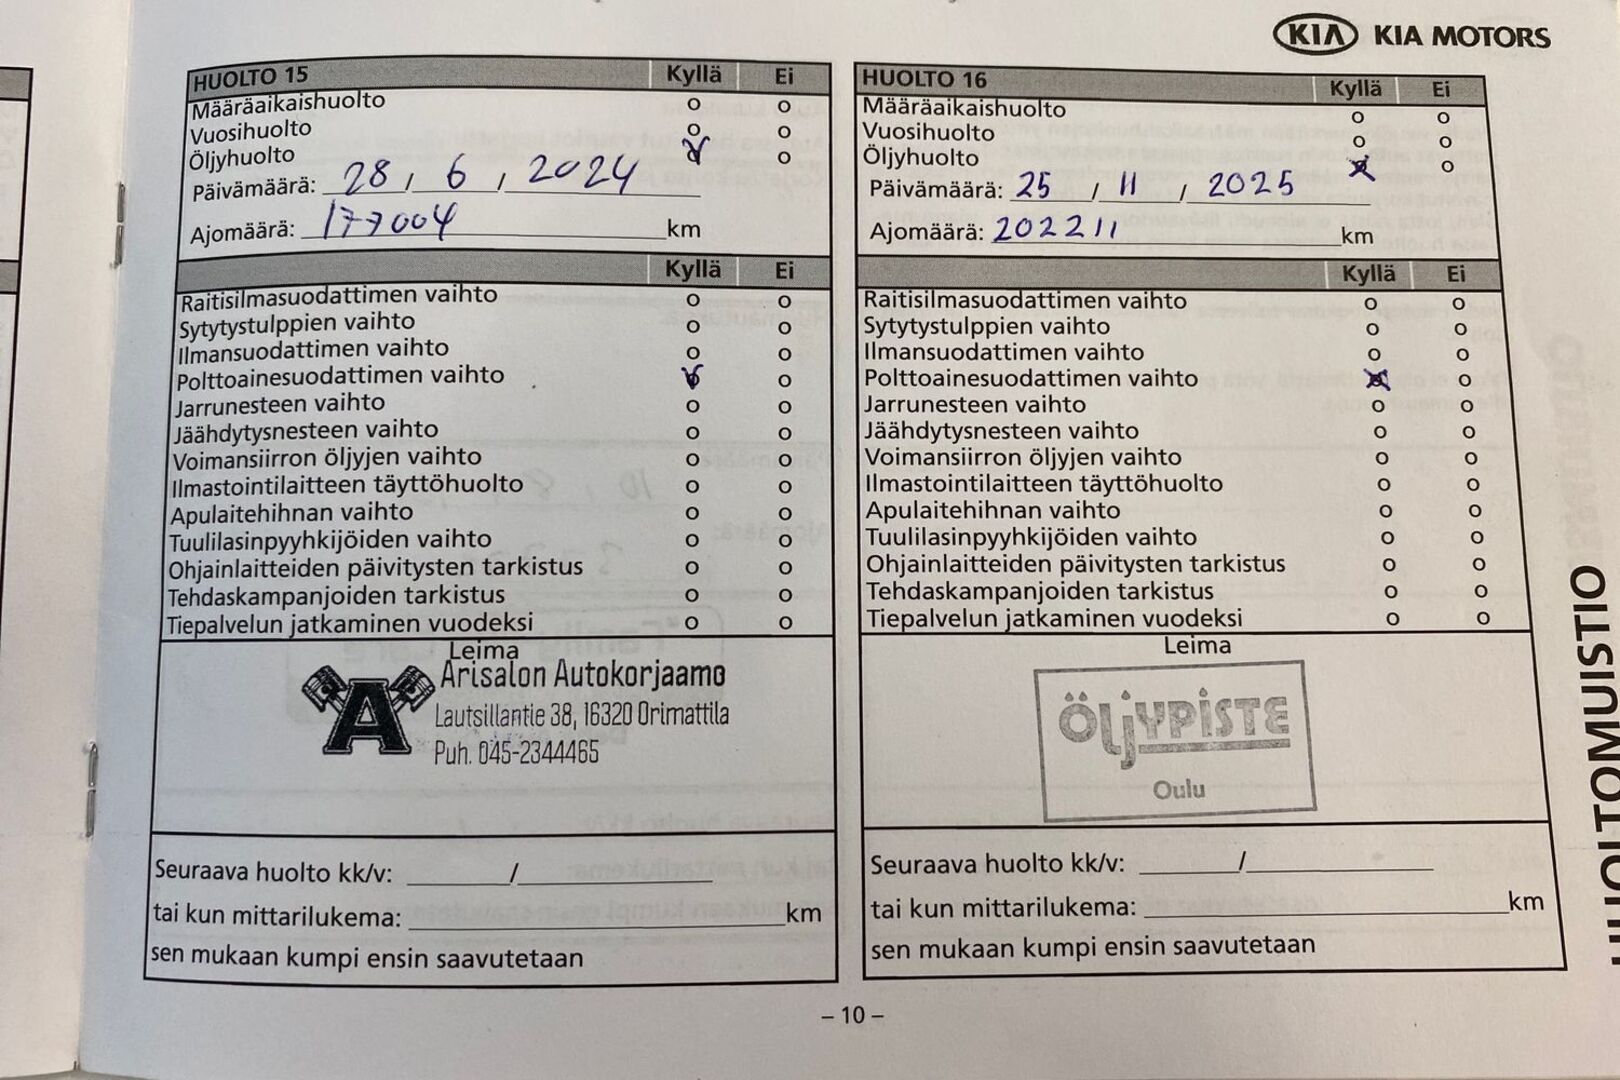 KIA KIA MOTORS
HUOLTO 15 Kyllä Ei
Määräaikaishuolto o o
Vuosihuolto o o
Öljyhuolto o o
Päivämäärä: 28 / 6 / 2024
Ajomäärä: 177004 km
Kyllä Ei
Raitisilmasuodattimen vaihto o o
Sytytystulppien vaihto o o
Ilmansuodattimen vaihto o o
Polttoainesuodattimen vaihto o o
Jarrunesteen vaihto o o
Jäähdytysnesteen vaihto o o
Voimansiirron öljyjen vaihto o o
Ilmastointilaitteen täyttöhuolto o o
Apulaitehihnan vaihto o o
Tuulilasinpyyhkijöiden vaihto o o
Ohjainlaitteiden päivitysten tarkistus o o
Tehdaskampanjoiden tarkistus o o
Tiepalvelun jatkaminen vuodeksi o o
Leima
A Arisalon Autokorjaamo
Lautsillantie 38, 16320 Orimattila
Puh. 045-2344465
Seuraava huolto kk/v: /
tai kun mittarilukema: km
sen mukaan kumpi ensin saavutetaan
HUOLTO 16 Kyllä Ei
Määräaikaishuolto o o
Vuosihuolto o o
Öljyhuolto o o
Päivämäärä: 25 / 11 / 2025
Ajomäärä: 202211 km
Kyllä Ei
Raitisilmasuodattimen vaihto o o
Sytytystulppien vaihto o o
Ilmansuodattimen vaihto o o
Polttoainesuodattimen vaihto o o
Jarrunesteen vaihto o o
Jäähdytysnesteen vaihto o o
Voimansiirron öljyjen vaihto o o
Ilmastointilaitteen täyttöhuolto o o
Apulaitehihnan vaihto o o
Tuulilasinpyyhkijöiden vaihto o o
Ohjainlaitteiden päivitysten tarkistus o o
Tehdaskampanjoiden tarkistus o o
Tiepalvelun jatkaminen vuodeksi o o
Leima
ÖLJYPISTE
Oulu
Seuraava huolto kk/v: /
tai kun mittarilukema: km
sen mukaan kumpi ensin saavutetaan
HUOLTOMUISTIO
– 10 –